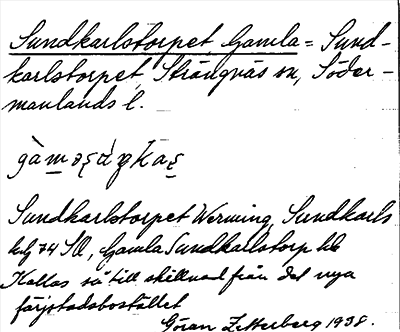 Sundkarlstorpet, Gamla = Sund-
karlstorpet, Strängnäs sn, Söder-
manlands l.
Sundkarlstorpet Werming, Sundkarls
74 Gamla Sundkarlstorp
Kallas så till skillnad från det nya
färjstadsbostället
Göran Zetterberg 1938.